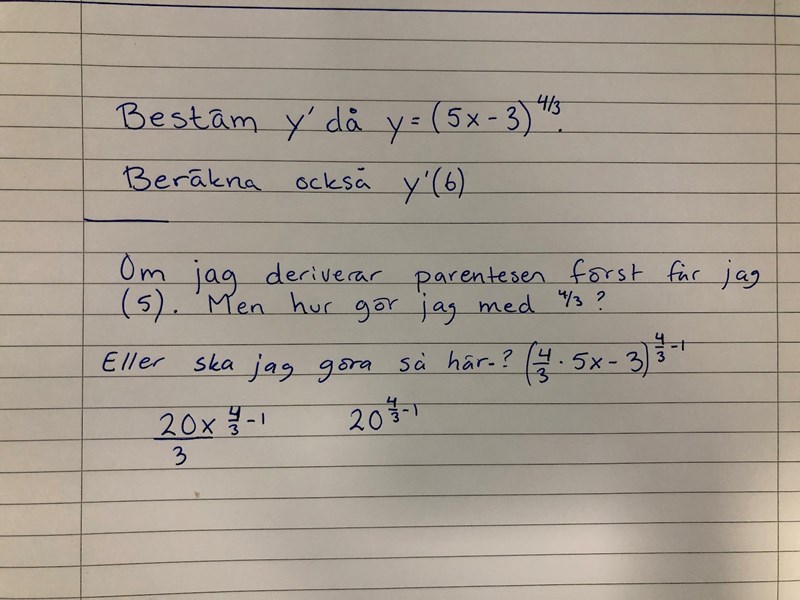 Bestäm y' då y = (5x - 3)^4/3.
Beräkna också y'(6)
Om jag deriverar parentesen först får jag
(5). Men hur gör jag med ^4/3 ?
Eller ska jag göra så här-? (4/3 · 5x - 3)^4/3-1
20x/3 ^4/3-1 20^4/3-1